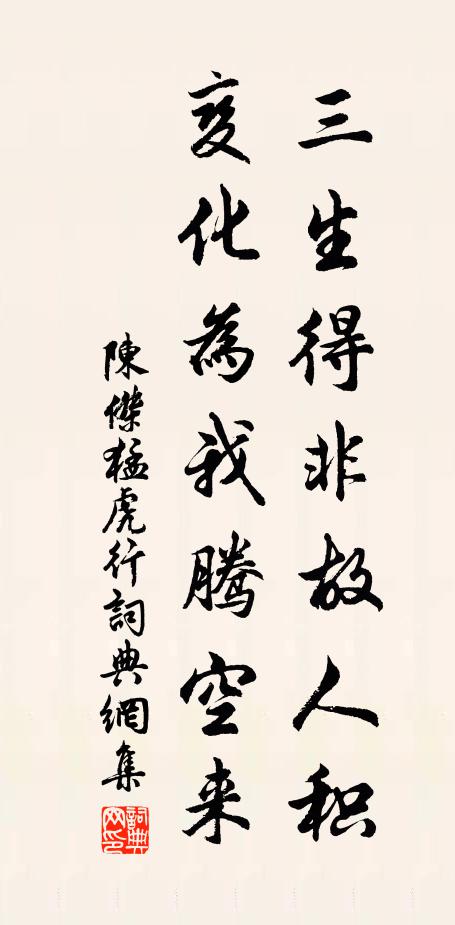 三生得非故人积
变化為我腾空来
陳傑猛虎行詞典網集
詞典网印